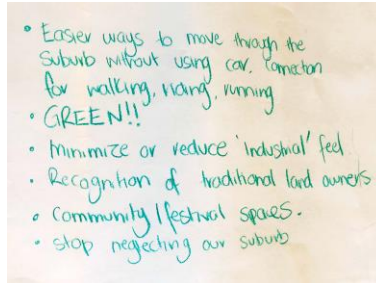 • Easier ways to move through the
suburb without using car. Connection
for walking, riding, running
• GREEN!!
• minimize or reduce 'industrial' feel
• Recognition of traditional land owners
• Community / festival spaces.
• stop neglecting our suburb